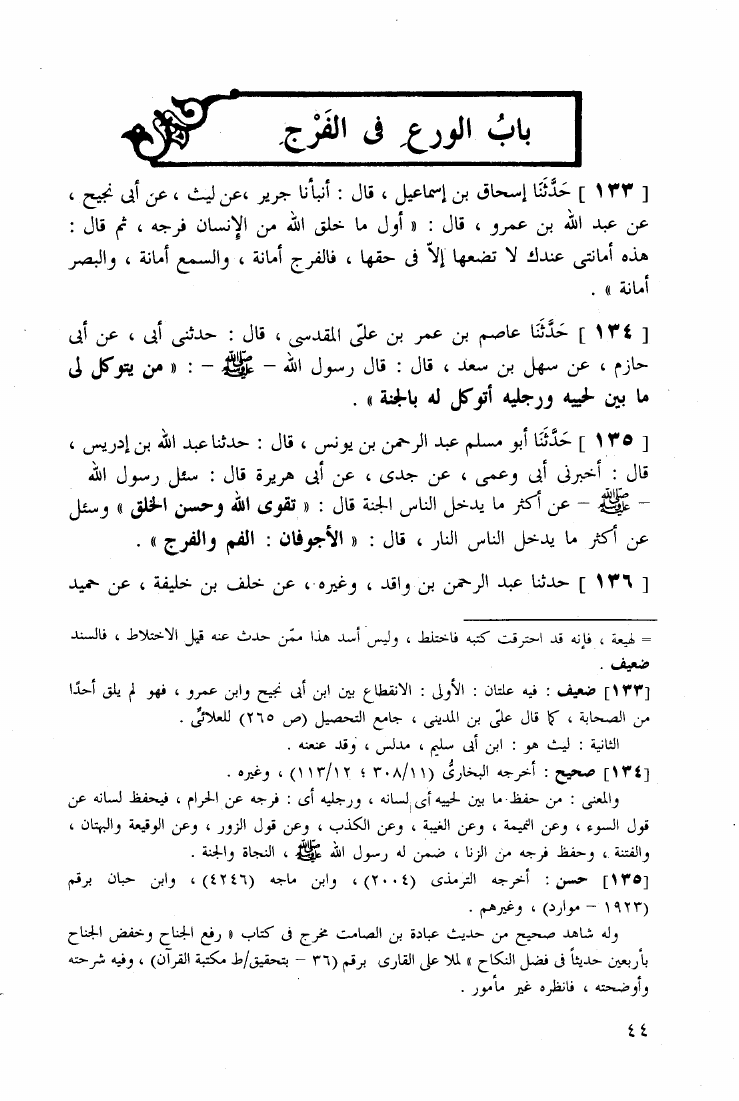 بابُ الورعِ فى الفَرْجِ
[ ١٣٣ ] حَدَّثَنَا إسحاق بن إسماعيل ، قال : أنبأنا جرير ،عن ليث ، عن أبى نجيح ،
عن عبد الله بن عمرو ، قال : « أول ما خلق الله من الإنسان فرجه ، ثم قال :
هذه أمانتى عندك لا تضعها إلاّ فى حقها ، فالفرج أمانة ، والسمع أمانة ، والبصر
أمانة » .
[ ١٣٤ ] حَدَّثَنَا عاصم بن عمر بن علىّ المقدسى ، قال : حدثنى أبى ، عن أبى
حازم ، عن سهل بن سعد ، قال : قال رسول الله - ﷺ - : « من يتوكل لى
ما بين لحييه ورجليه أتوكل له بالجنة » .
[ ١٣٥ ] حَدَّثَنَا أبو مسلم عبد الرحمن بن يونس ، قال : حدثنا عبد الله بن إدريس ،
قال : أخبرنى أبى وعمى ، عن جدى ، عن أبى هريرة قال : سئل رسول الله
- ﷺ - عن أكثر ما يدخل الناس الجنة قال : « تقوى الله وحسن الخلق » وسئل
عن أكثر ما يدخل الناس النار ، قال : « الأجوفان : الفم والفرج » .
[ ١٣٦ ] حدثنا عبد الرحمن بن واقد ، وغيره ، عن خلف بن خليفة ، عن حميد
= لهيعة ، فإنه قد احترقت كتبه فاختلط ، وليس أسد هذا ممّن حدث عنه قبل الاختلاط ، فالسند
ضعيف .
[١٣٣] ضعيف : فيه علتان : الأولى : الانقطاع بين ابن أبى نجيح وابن عمرو ، فهو لم يلق أحدًا
من الصحابة ، كما قال علىّ بن المدينى ، جامع التحصيل (ص ٢٦٥) للعلائىِّ .
الثانية : ليث هو : ابن أبى سليم ، مدلس ، وقد عنعنه .
[١٣٤] صحيح : أخرجه البخارىُّ (٣٠٨/١١ ؛ ١١٣/١٢) ، وغيره .
والمعنى : من حفظ ما بين لحييه أى لسانه ، ورجليه أى : فرجه عن الحرام ، فيحفظ لسانه عن
قول السوء ، وعن النميمة ، وعن الغيبة ، وعن الكذب ، وعن قول الزور ، وعن الوقيعة والبهتان ،
والفتنة ، وحفظ فرجه من الزنا ، ضمن له رسول الله ﷺ ، النجاة والجنة .
[١٣٥] حسن : أخرجه الترمذى (٢٠٠٤) ، وابن ماجه (٤٢٤٦) ، وابن حبان برقم
(١٩٢٣ - موارد) ، وغيرهم .
وله شاهد صحيح من حديث عبادة بن الصامت مخرج فى كتاب « رفع الجناح وخفض الجناح
بأربعين حديثاً فى فضل النكاح » لملا على القارى برقم (٣٦ - بتحقيق/ط مكتبة القرآن) ، وفيه شرحته
وأوضحته ، فانظره غير مأمور .
٤٤